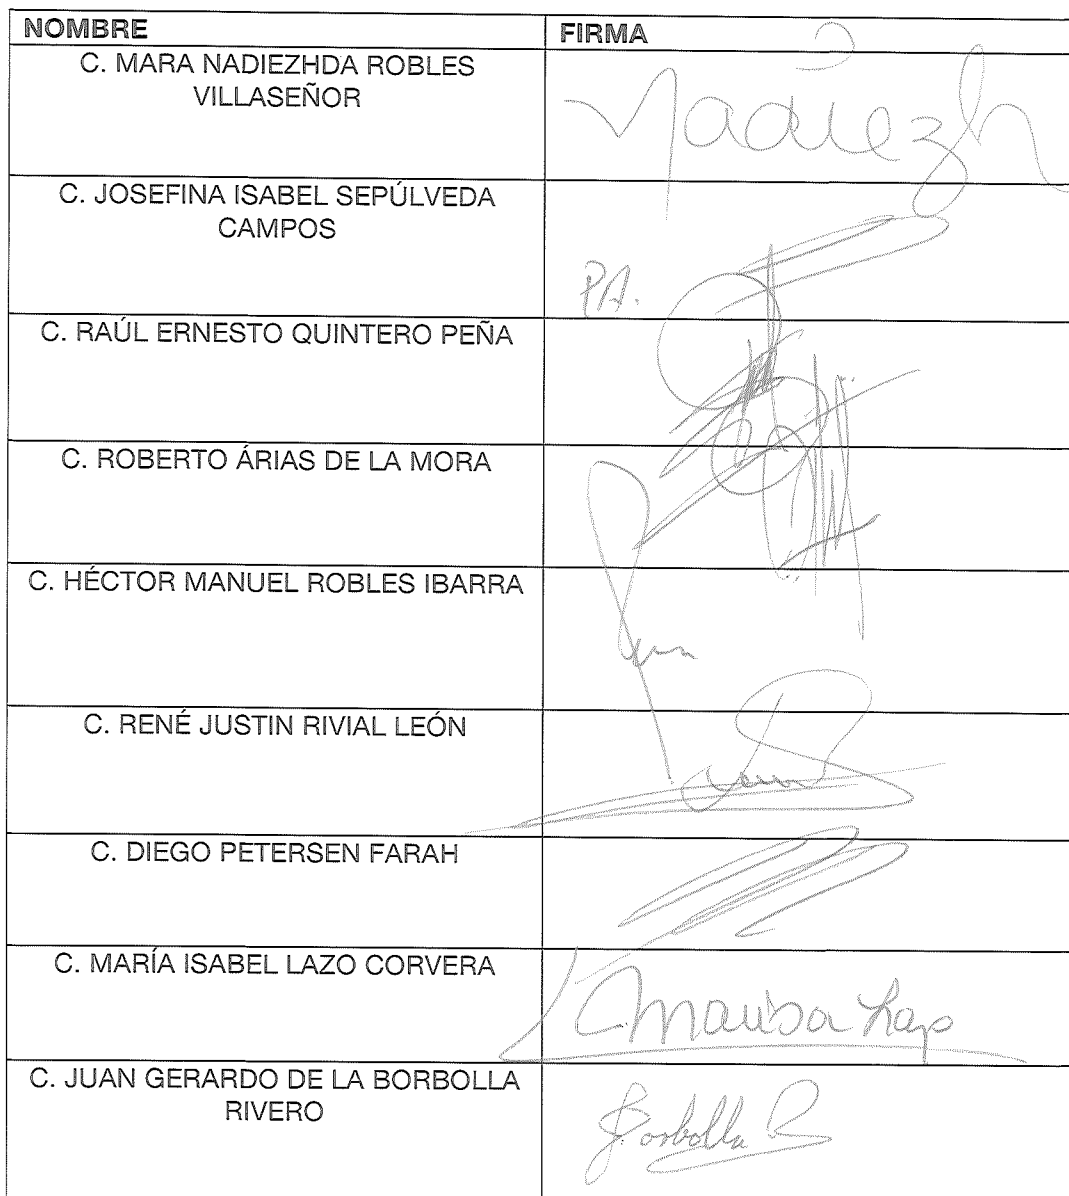 NOMBRE FIRMA
C. MARA NADIEZHDA ROBLES
VILLASEÑOR
Nadiezh
C. JOSEFINA ISABEL SEPÚLVEDA
CAMPOS
P.A.
C. RAÚL ERNESTO QUINTERO PEÑA
C. ROBERTO ÁRIAS DE LA MORA
C. HÉCTOR MANUEL ROBLES IBARRA
C. RENÉ JUSTIN RIVIAL LEÓN
C. DIEGO PETERSEN FARAH
C. MARÍA ISABEL LAZO CORVERA
Marisa Lazo
C. JUAN GERARDO DE LA BORBOLLA
RIVERO
Borbolla R